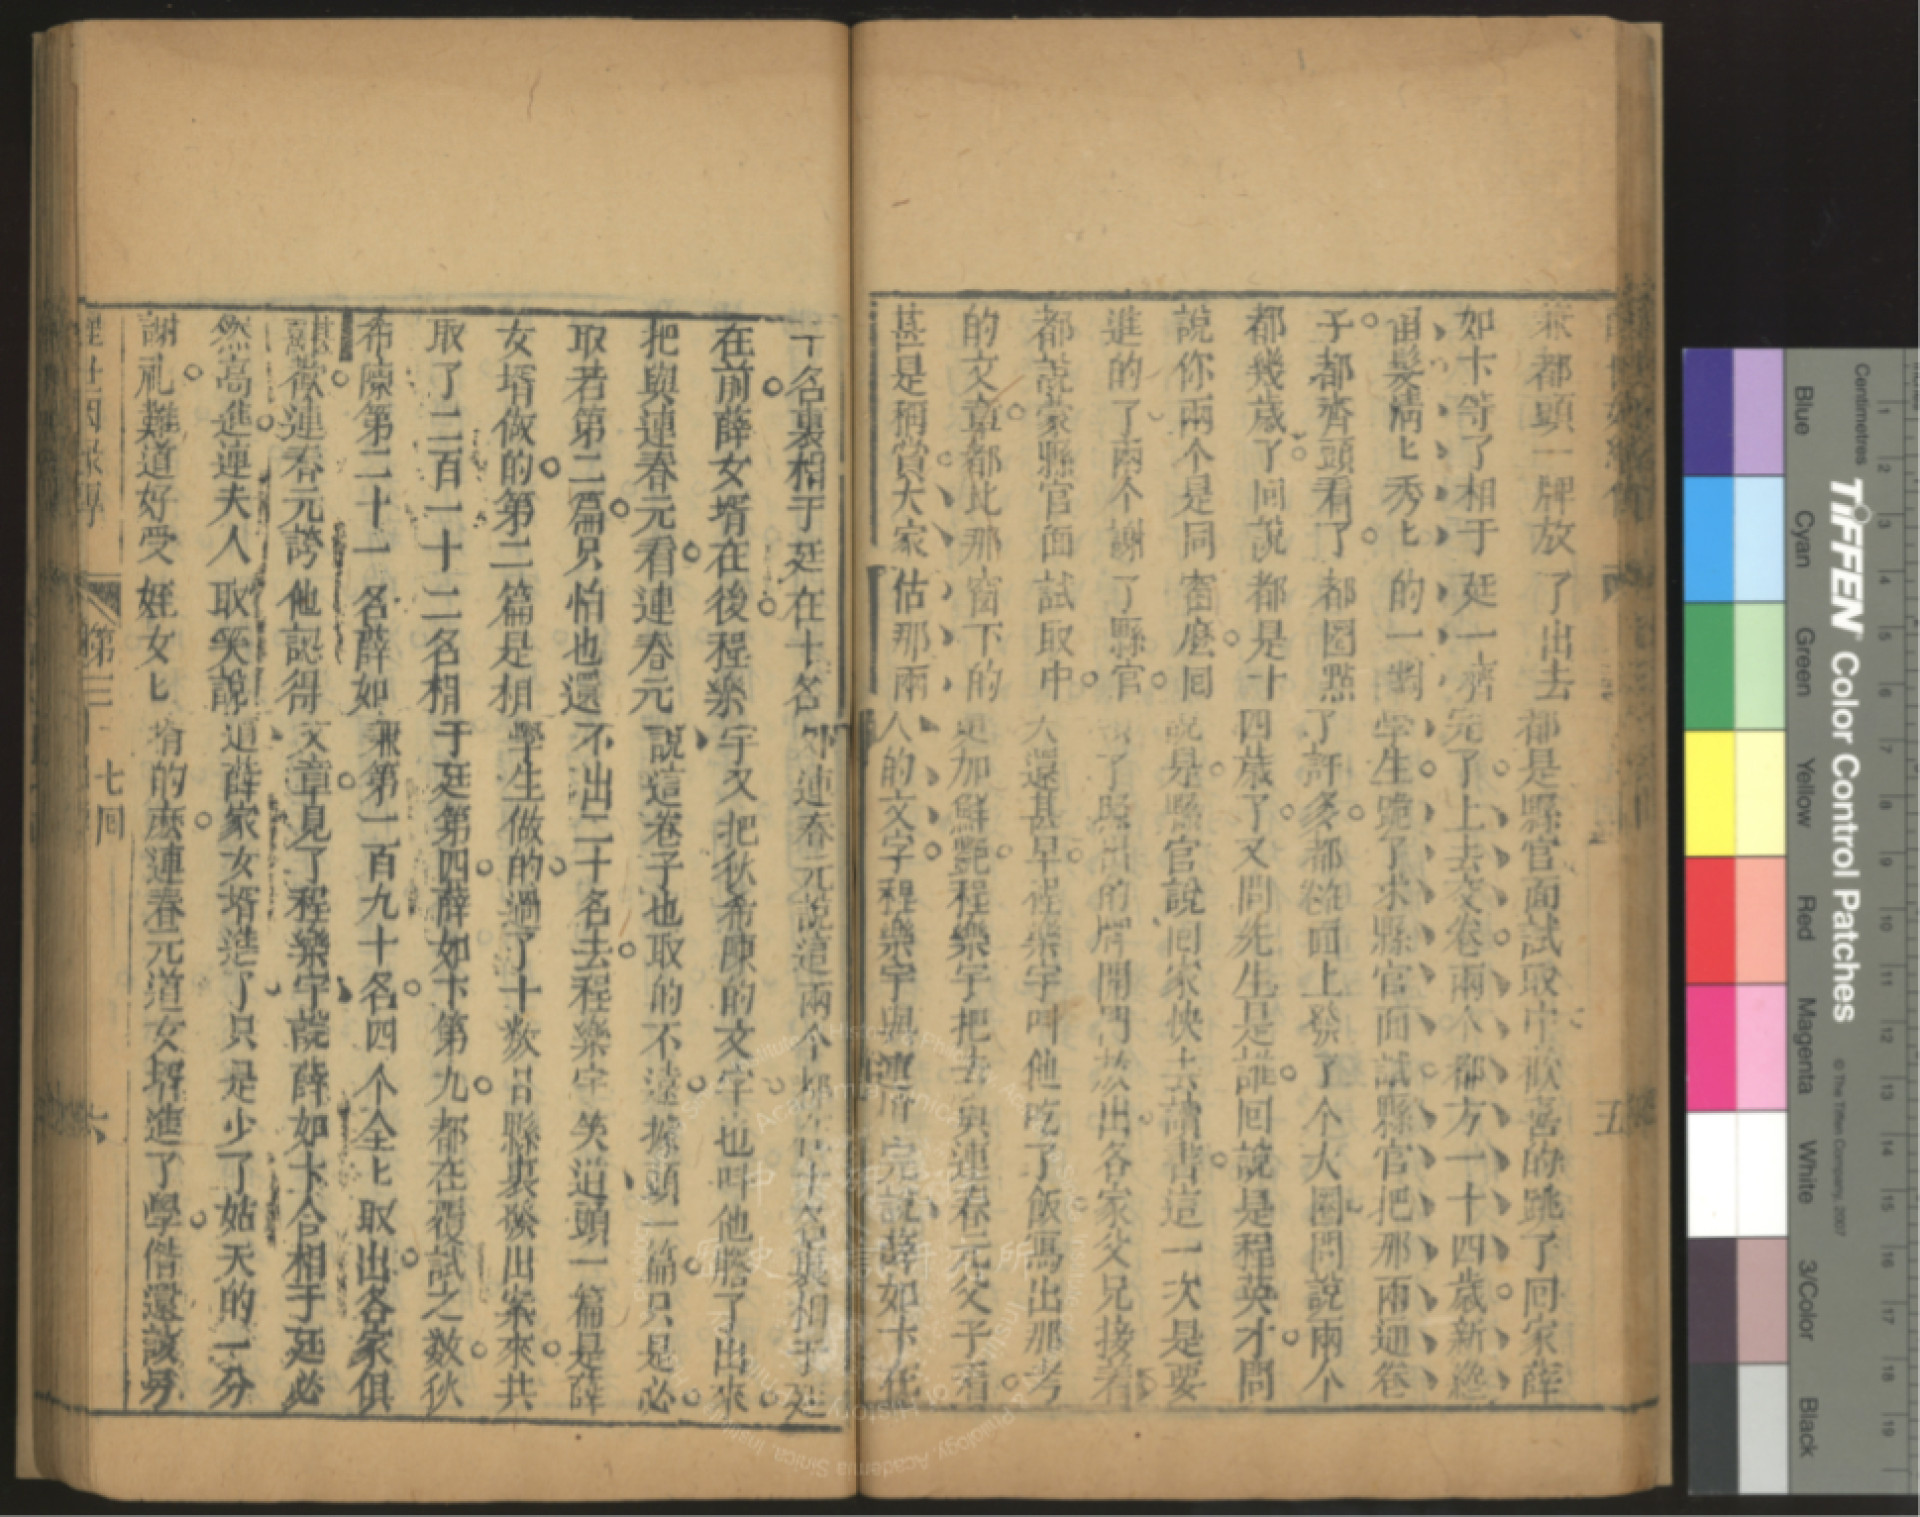 兼都頭一牌放了出去都是縣官面試取中歡喜的跳了回家薛
如卞等了相于廷一齊完了上去交卷兩个都方一十四歲新
髮清ヒ秀ヒ的一對學生跪了求縣官面試縣官把那兩通卷
子都齊頭看了都圈點了許多都在面上發了个大圈問說兩个
都幾歲了回說都是十四歲了又問先生是誰回說是程英才問
說你兩个是同窗麽回說是縣官說回家快去讀書這一次是要
進的了兩个謝了縣官領了照出的牌開門放出各家父兄接著
都說蒙縣官面試取中大還甚早程樂宇叫他吃了飯寫出那考
的文章都比那窗下的更加鮮艷程樂宇把去與連春元父子看
甚是稱賞大家估那兩人的文字程樂宇與連看完說薛如卞在
十名裏相于廷在十名外連春元說這兩个都在十名裏相于廷
在前薛女壻在後程樂宇又把狄希陳的文字也叫他謄了出來
把與連春元看連春元說這卷子也取的不遠據頭一篇只是必
取若第二篇只怕也還不出二十名去程樂宇笑道頭一篇是薛
女壻做的第二篇是相學生做的過了十數日縣裏發出案來共
取了二百一十二名相于廷第四薛如卞第九都在覆試之數狄
希陳第二十一名薛如兼第一百九十名四个全ヒ取出各家俱
甚喜歡連春元誇他認得文章見了程樂宇說薛如卞合相于廷必
然高進連夫人取笑說道薛家女壻進了只是少了姑夫的一分
謝禮難道好受姪女ヒ壻的麽連春元道女壻進了學偕還該另
醒世因緣傳
第三十七回
六
五
中央研究院
歷史語言研究所
Institute of History and Philology Academia Sinica
Centimetres
TIFFEN Color Control Patches
© The Tiffen Company, 2007
Blue
Cyan
Green
Yellow
Red
Magenta
White
3/Color
Black
1
2
3
4
5
6
7
8
9
10
11
12
13
14
15
16
17
18
19